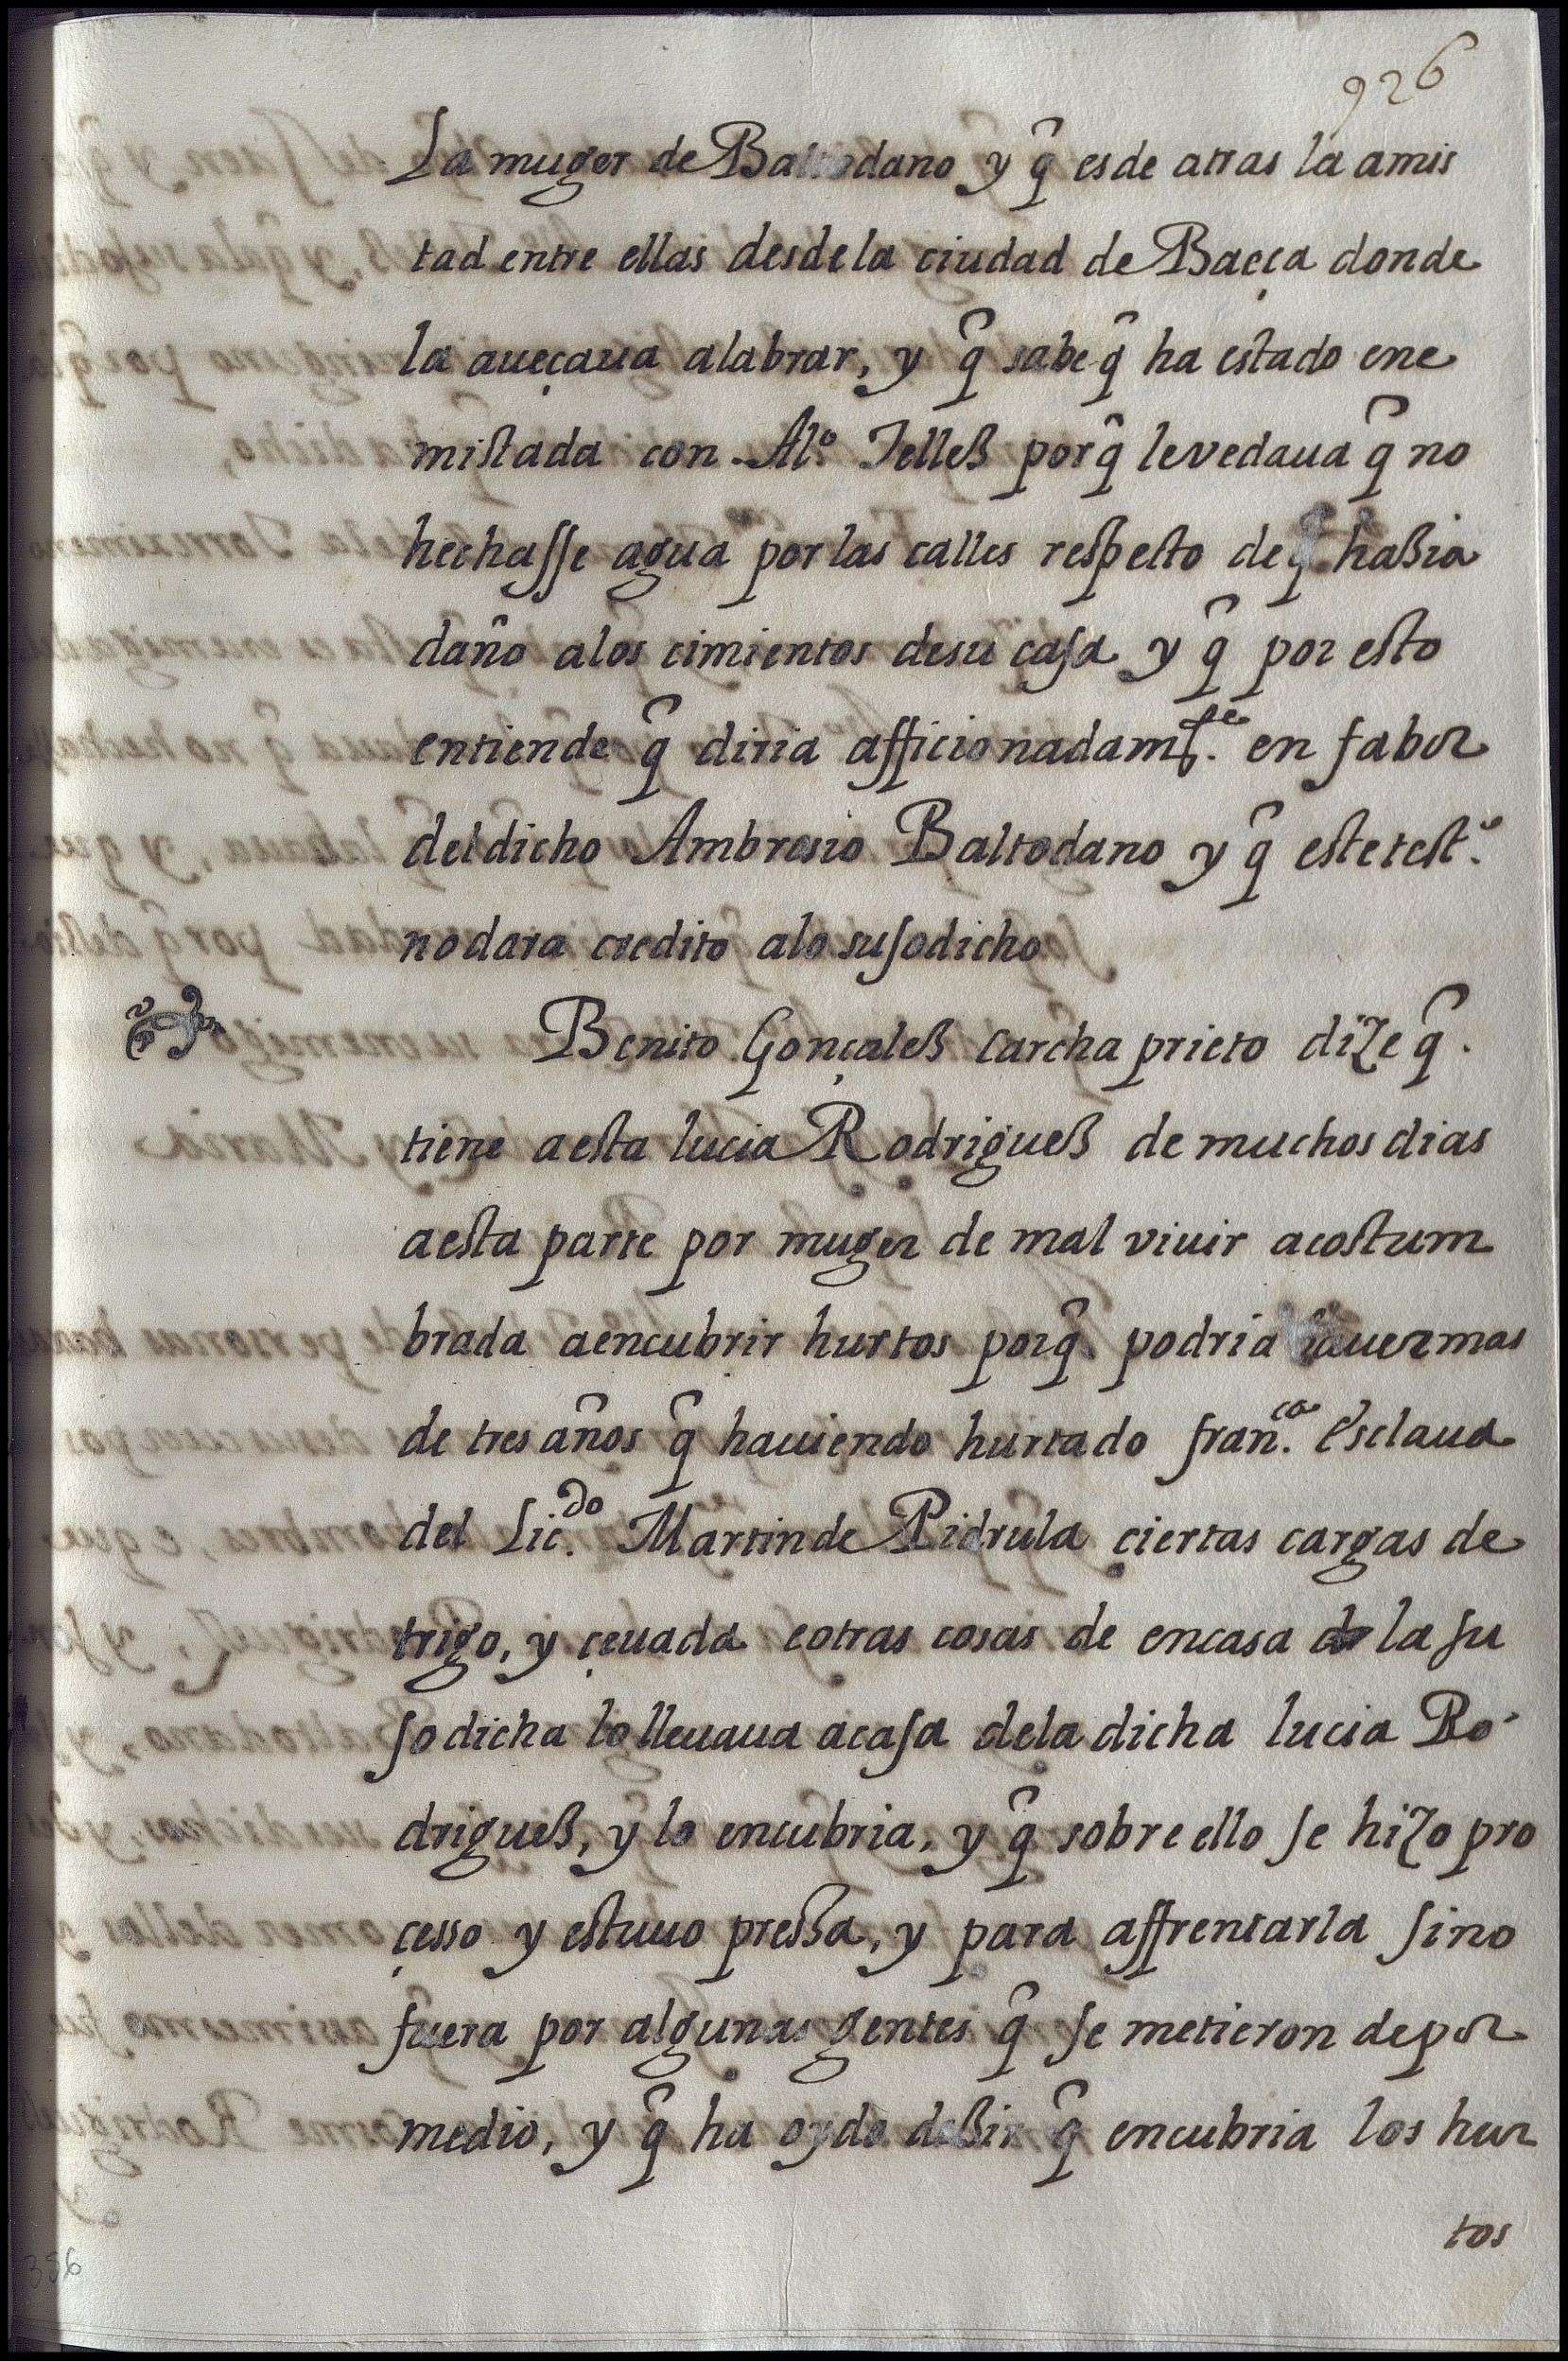 926
La muger de Baltodano y q̃ es de atras la amis
tad entre ellas desde la ciudad de Baeça donde
la aueçaua alabrar, y q̃ sabe q̃ ha estado ene
mistada con Al.º Telleß porq̃ levedaua q̃ no
hechasse agua por las calles respecto de q̃ haßia
daño alos cimientos desu casa y q̃ por esto
entiende q̃ diria afficionadam.te en fabor
deldicho Ambrosio Baltodano y q̃ este test.º
no dara credito alo susodicho
Benito Gonçaleß Carcha prieto dize q̃.
tiene aesta lucia Rodrigueß de muchos dias
aesta parte por muger de mal viuir acostum
brada aencubrir hurtos porq̃ podria hauer mas
de tres años q̃ hauiendo hurtado fran.ca esclaua
del Lic.do Martin de Pidrula çiertas cargas de
trigo, y çeuada eotras cosas de encasa de la su
sodicha lo lleuaua acasa dela dicha lucia Ro-
drigueß, y lo encubria, y q̃ sobre ello se hizo pro
çesso y estuuo preßa, y para affrentarla sino
fuera por algunas gentes q̃ se metieron depor
medio, y q̃ ha oydo deßir q̃ encubria los hur
tos
356